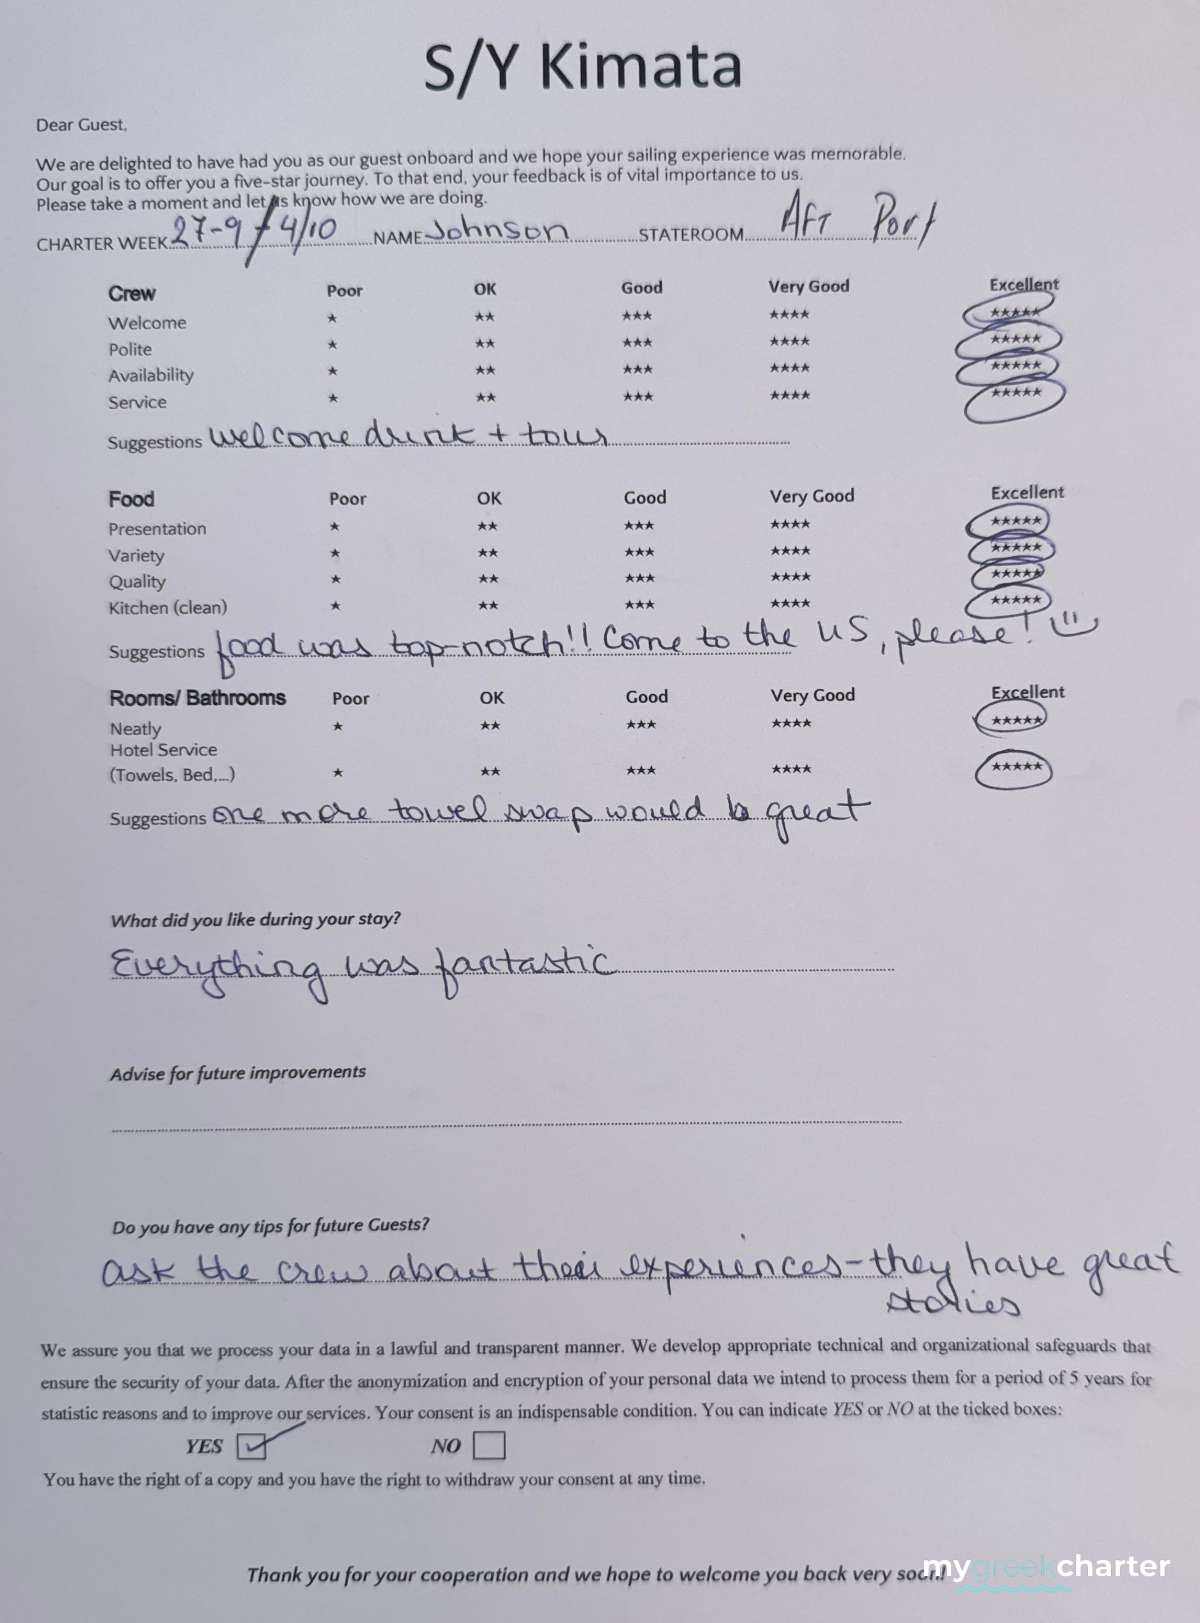 S/Y Kimata
Dear Guest,
We are delighted to have had you as our guest onboard and we hope your sailing experience was memorable.
Our goal is to offer you a five-star journey. To that end, your feedback is of vital importance to us.
Please take a moment and let us know how we are doing.
CHARTER WEEK 27-9 / 4/10 NAME Johnson STATEROOM Aft Port
Crew Poor OK Good Very Good Excellent
Welcome ★ ★★ ★★★ ★★★★ ★★★★★
Polite ★ ★★ ★★★ ★★★★ ★★★★★
Availability ★ ★★ ★★★ ★★★★ ★★★★★
Service ★ ★★ ★★★ ★★★★ ★★★★★
Suggestions welcome drink + tour
Food Poor OK Good Very Good Excellent
Presentation ★ ★★ ★★★ ★★★★ ★★★★★
Variety ★ ★★ ★★★ ★★★★ ★★★★★
Quality ★ ★★ ★★★ ★★★★ ★★★★★
Kitchen (clean) ★ ★★ ★★★ ★★★★ ★★★★★
Suggestions food was top-notch!! Come to the US, please!
Rooms/ Bathrooms Poor OK Good Very Good Excellent
Neatly ★ ★★ ★★★ ★★★★ ★★★★★
Hotel Service
(Towels, Bed,...) ★ ★★ ★★★ ★★★★ ★★★★★
Suggestions one more towel swap would be great
What did you like during your stay?
Everything was fantastic
Advise for future improvements
Do you have any tips for future Guests?
ask the crew about their experiences - they have great
stories
We assure you that we process your data in a lawful and transparent manner. We develop appropriate technical and organizational safeguards that
ensure the security of your data. After the anonymization and encryption of your personal data we intend to process them for a period of 5 years for
statistic reasons and to improve our services. Your consent is an indispensable condition. You can indicate YES or NO at the ticked boxes:
YES NO
You have the right of a copy and you have the right to withdraw your consent at any time.
Thank you for your cooperation and we hope to welcome you back very soon!
mygreekcharter